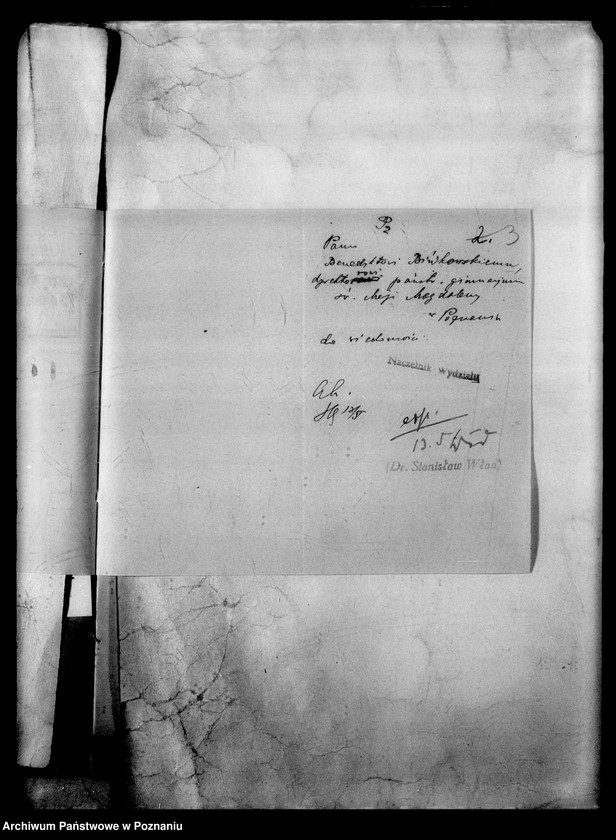 Pz
2. 3
Panu
Benedyktowi Bińkowskiemu,
dyrektorowi państ. gimnazjum
św. Marji Magdaleny
w Poznaniu
do wiadomości.
Naczelnik Wydziału
13.5
(Dr. Stanisław Wład)
Archiwum Państwowe w Poznaniu